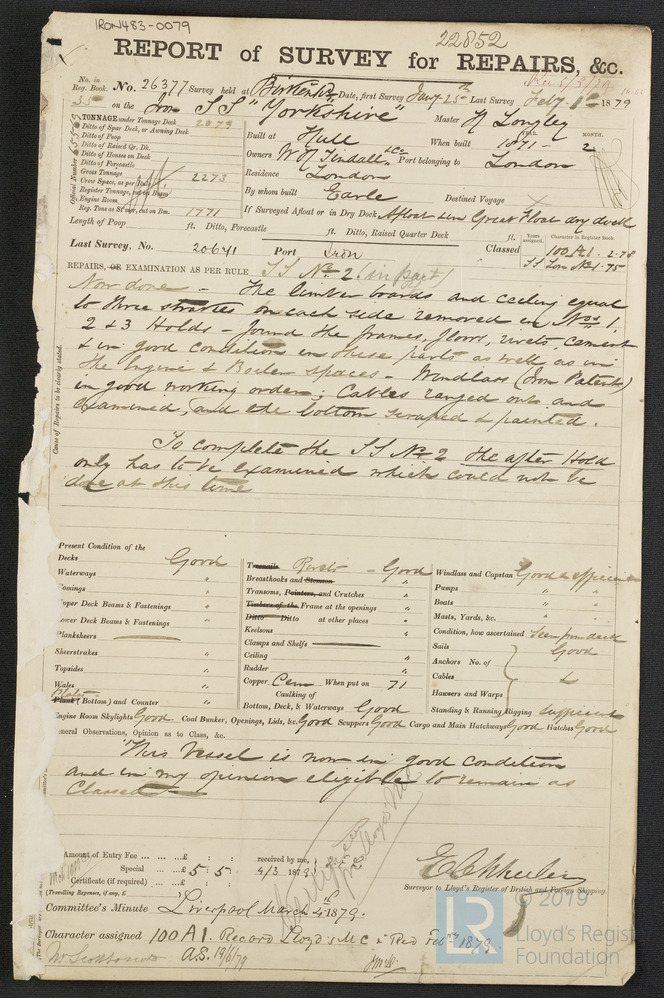 IRON483-0079
22852
REPORT of SURVEY for REPAIRS, &c.
No. in Reg. Book. No. 26377 Survey held at Birkenhd Date, first Survey Jany 25th Last Survey Feby 1st 1879
35 on the Iron S S "Yorkshire" Master H Longley
TONNAGE under Tonnage Deck 2079
Ditto of Spar Deck, or Awning Deck
Ditto of Poop
Ditto of Raised Qr. Dk.
Ditto of Houses on Deck
Ditto of Forecastle
Gross Tonnage 2273
Crew Space, as per Rule
Register Tonnage, cut on Beam
Engine Room
Reg. Tons as St'mer, cut on Bm. 1771
Official Number
Built at Hull When built YEAR. 1871 MONTH. 2
Owners W H Tindall & Co Port belonging to London
Residence London
By whom built Earle Destined Voyage
If Surveyed Afloat or in Dry Dock Afloat & in Great Float dry dock
Length of Poop ft. Ditto, Forecastle ft. Ditto, Raised Quarter Deck ft.
Years assigned. Character in Register Book.
Last Survey, No. 20641 Port Liron Classed 100 A1. 2.78
SS Lon No 1. 75
REPAIRS, OR EXAMINATION AS PER RULE S S No 2 (in part)
Now done - The limber boards and ceiling equal
to three strakes on each side removed in Nos 1,
2 & 3 Holds - found the frames, floors, rivets, cement
& in good condition in these parts as well as in
the Engine & Boiler spaces - Windlass (Iron Patent)
in good working order; Cables ranged out and
examined, and the bottom scraped & painted.
To complete the S S No 2 the after Hold
only has to be examined which could not be
done at this time
Cause of Repairs to be clearly stated.
Present Condition of the
Decks Good
Waterways "
Comings "
Upper Deck Beams & Fastenings "
Lower Deck Beams & Fastenings "
Planksheers
Sheerstrakes "
Topsides "
Wales "
Plates
Plank (Bottom) and Counter "
Treenails Rivets - Good
Breasthooks and Stemson "
Transoms, Pointers, and Crutches "
Timbers of the Frame at the openings "
Ditto Ditto at other places "
Keelsons "
Clamps and Shelfs
Ceiling "
Rudder "
Copper Cem When put on 71
Caulking of
Bottom, Deck, & Waterways Good
Windlass and Capstan Good & efficient
Pumps " "
Boats " "
Masts, Yards, &c. " "
Condition, how ascertained Seen from deck
Sails Good
Anchors No. of
Cables
Hawsers and Warps
Standing & Running Rigging sufficient
Engine Room Skylights Good Coal Bunker, Openings, Lids, &c. Good Scuppers Good Cargo and Main Hatchways Good Hatches Good
General Observations, Opinion as to Class, &c.
This Vessel is now in good condition
and in my opinion eligible to remain as
Classed
Amount of Entry Fee ... ... ...£ : : received by me,
Special ... ...£ 5 : 5 : 4/3 1879
Certificate (if required) ... ...£ : :
(Travelling Expenses, if any, £
Surveyor to Lloyd's Register of British and Foreign Shipping.
Committee's Minute Liverpool March 4th 1879.
Character assigned 100 A1. Record Lloyd's M C & Red Feby 1879.
A.S. 19/6/79
LR
© 2019
Lloyd's Register
Foundation